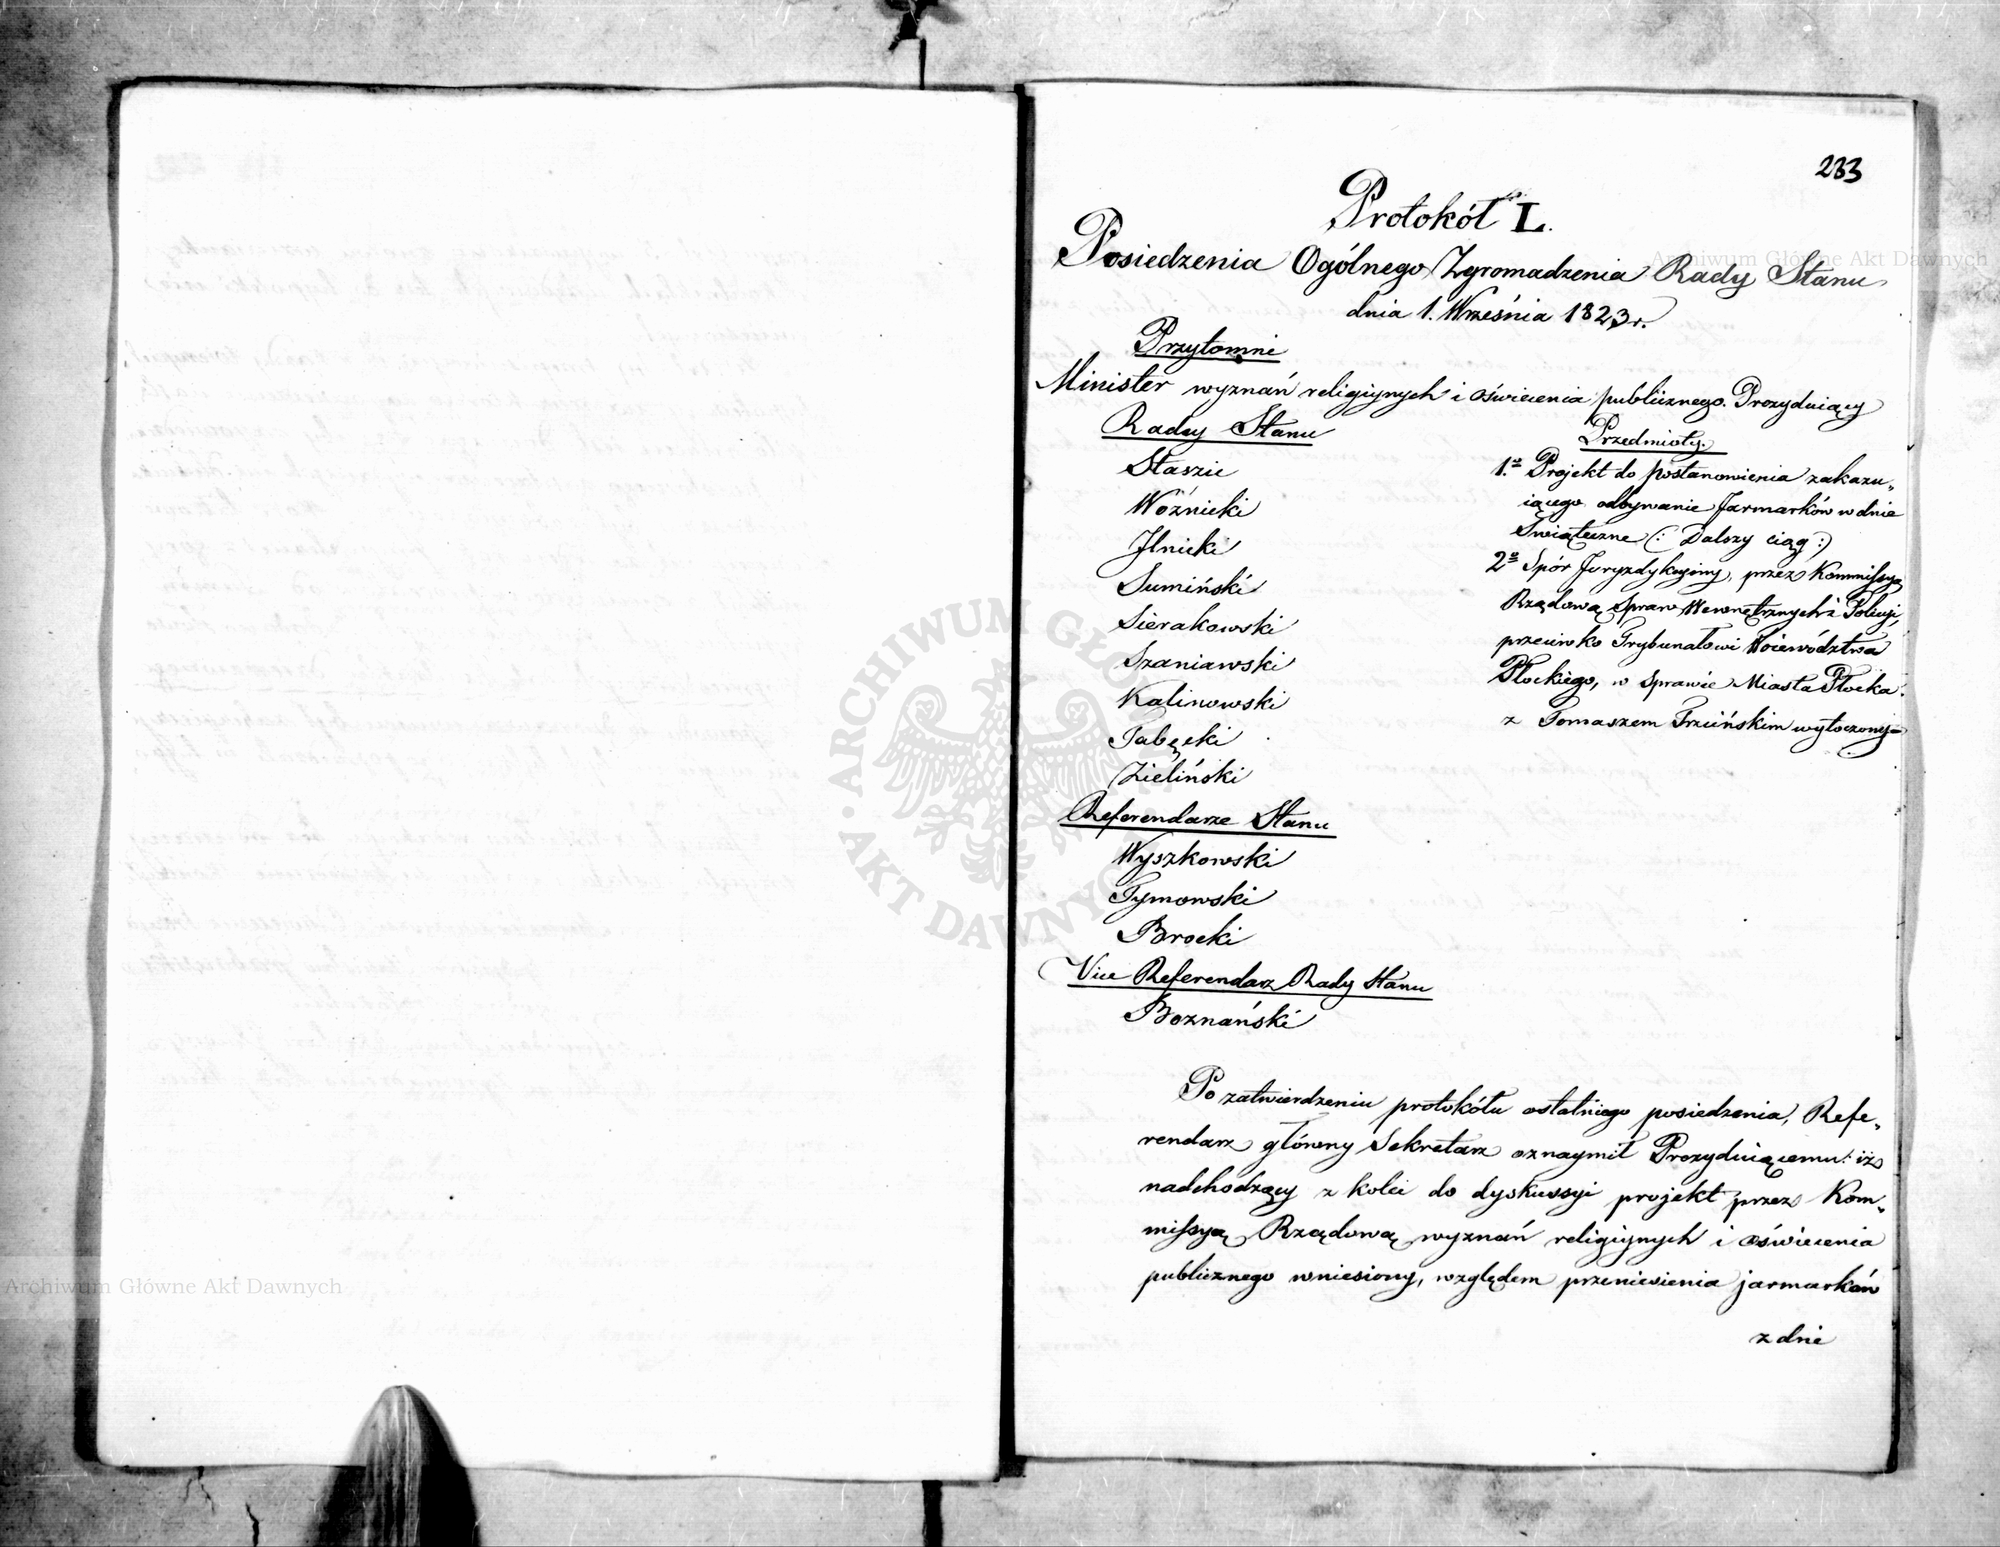 233
Protokół L.
Posiedzenia Ogólnego Zgromadzenia Rady Stanu
dnia 1. Września 1823 r.
Przytomni
Minister wyznań religiynych i oświecenia publicznego. Prezyduiący
Radcy Stanu
Staszic
Woźnicki
Ilnicki
Sumiński
Sierakowski
Szaniawski
Kalinowski
Tabęcki
Zieliński
Referendarze Stanu
Wyszkowski
Tymowski
Brocki
Vice Referendarz Rady Stanu
Boznański
Przedmioty.
1.° Projekt do postanowienia zakazu„
iącego odbywanie Jarmarków w dnie
Świąteczne (: Dalszy ciąg :)
2° Spór Juryzdykcyiny, przez Kommissyą
Rządową Spraw Wewnętrznych i Policyi,
przeciwko Trybunałowi Woiewództwa
Płockiego, w Sprawie Miasta Płocka
z Tomaszem Trzcińskim wytoczony
Po zatwierdzeniu protokółu ostatniego posiedzenia, Refe„
rendarz główny Sekretarz oznaymił Prezyduiącemu: iż
nadchodzący z kolei do dyskussyi projekt przez Kom„
missyą Rządową wyznań religiynych i oświecenia
publicznego wniesiony, względem przeniesienia jarmarków
z dnie
Archiwum Główne Akt Dawnych
Archiwum Główne Akt Dawnych
ARCHIWUM GŁÓWNE AKT DAWNYCH